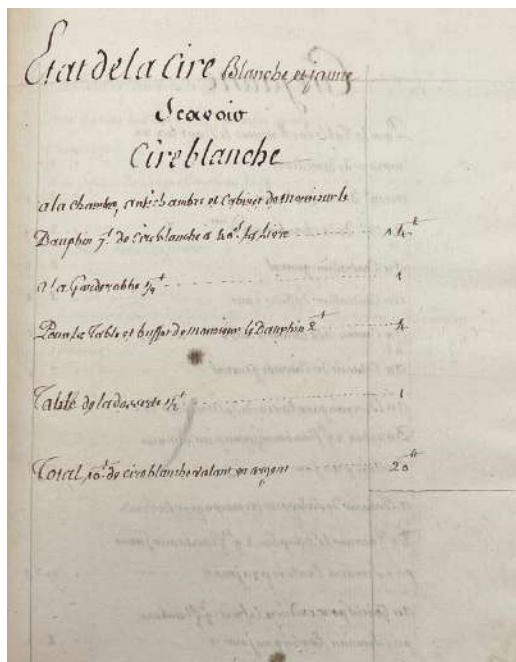 Etat de la Cire Blanche et jaune
Scavoir
Cire blanche
a la chambre, antichambre et Cabinet de Monsieur le
Dauphin 7ᵗ. de Cire blanche a 40ˢ. la Livre 14ᵗᵗ
a la Garderobbe ½ᵗ 1
Pour la Table et buffet de Monsieur le Dauphin 2ᵗ 4
Table de la desserte ½ᵗ 1
Total, 10ᵗ. de cire blanche valant en argent 20ᵗᵗ